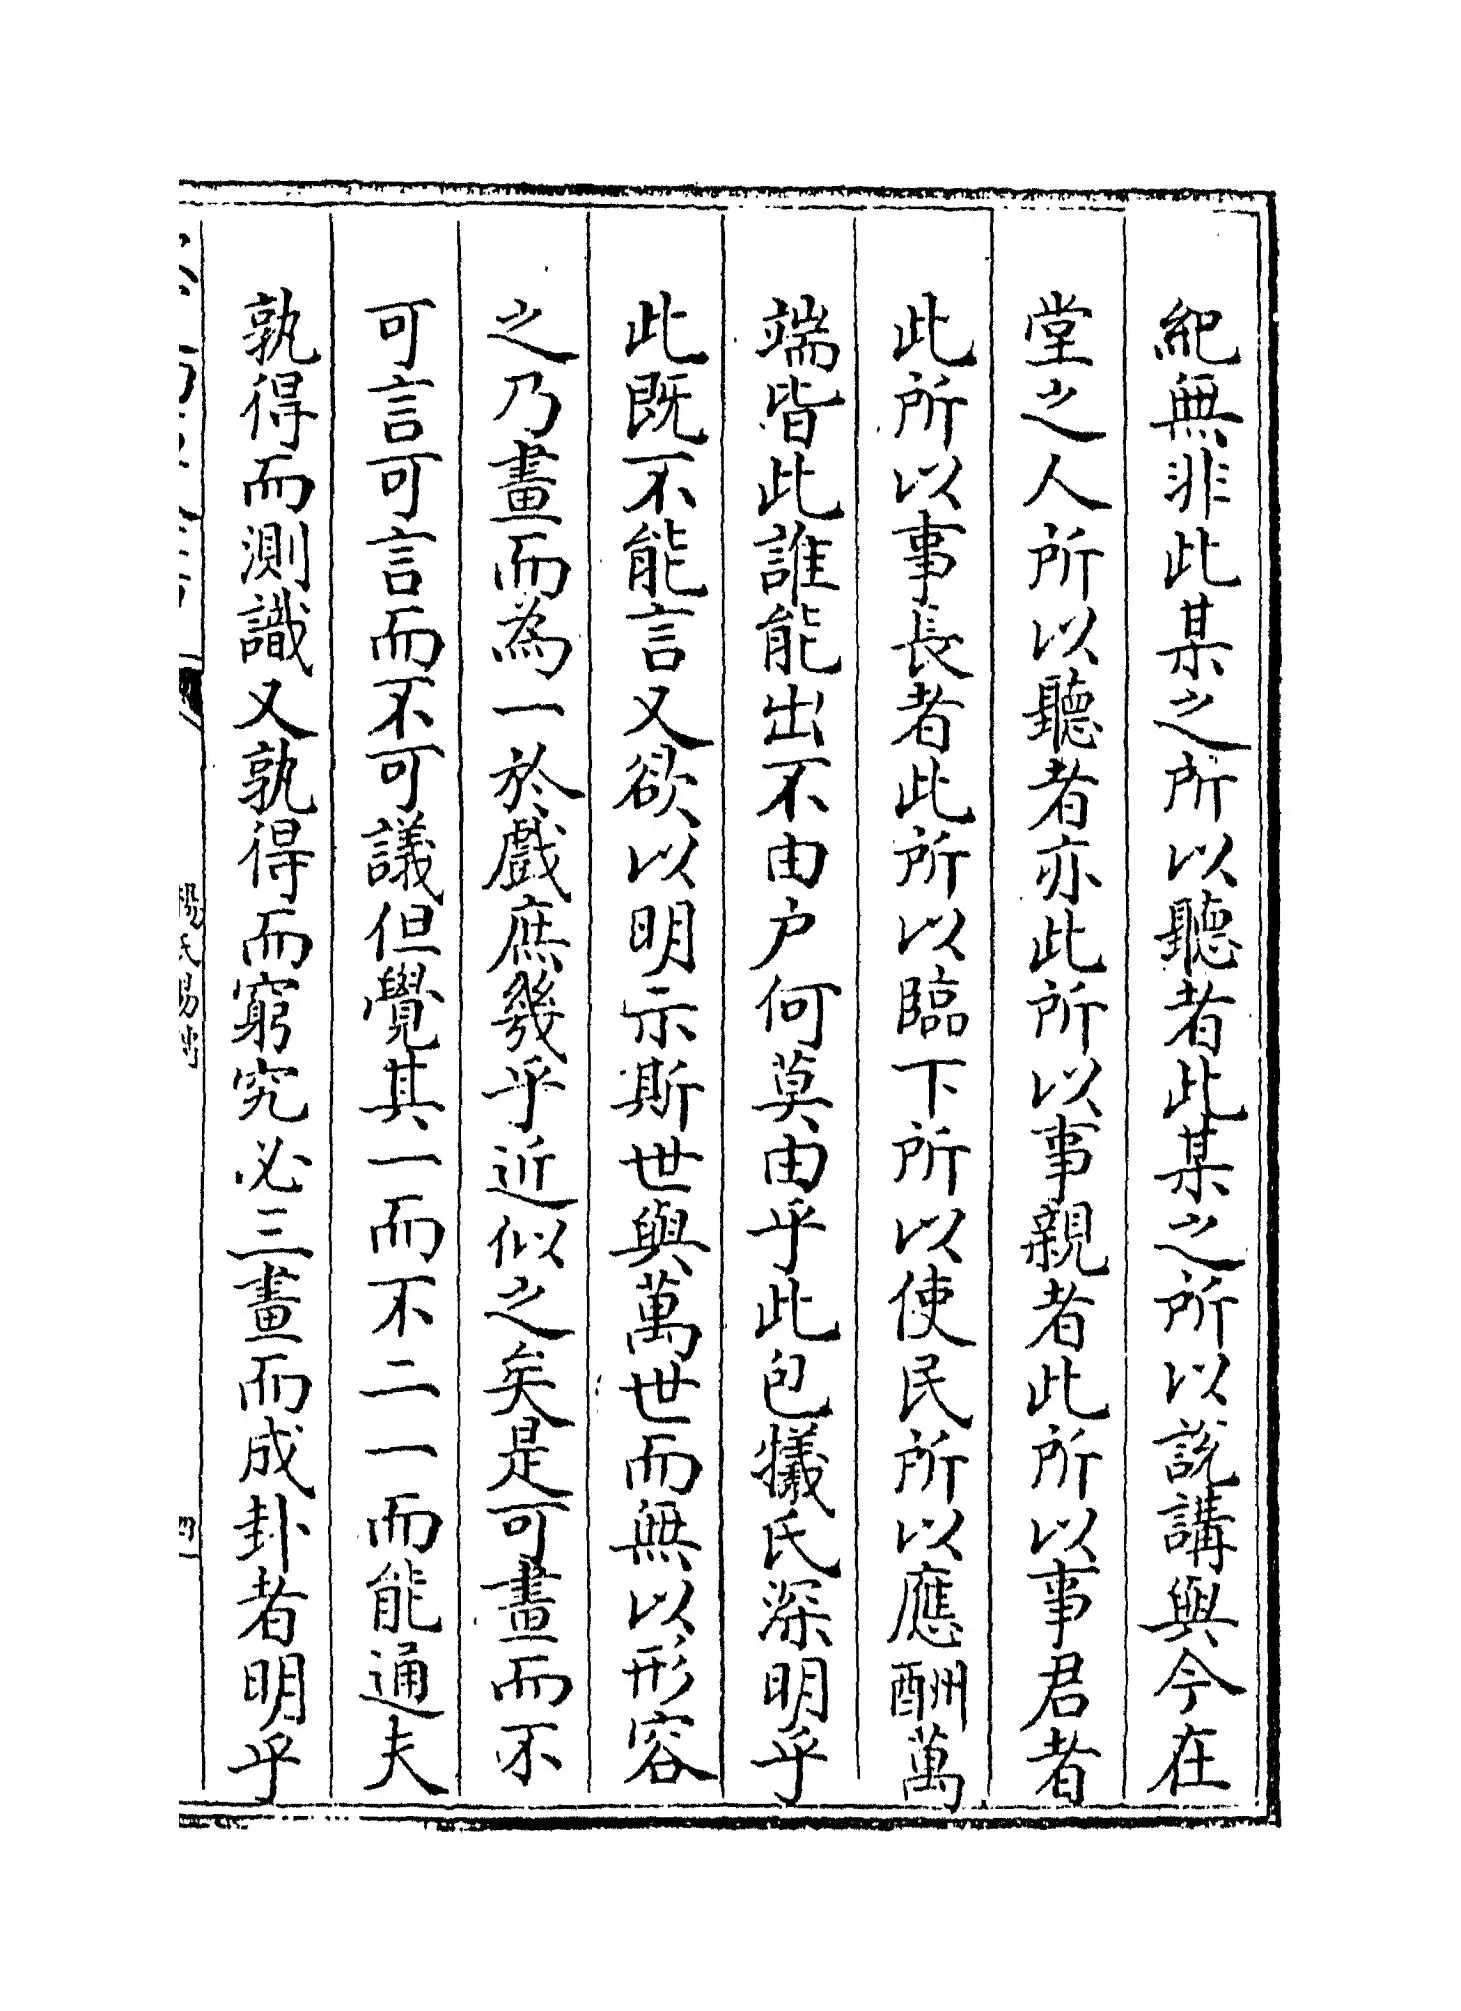 紀無非此某之所以聽者此某之所以説講與今在
堂之人所以聽者亦此所以事親者此所以事君者
此所以事長者此所以臨下所以使民所以應酬萬
端皆此誰能出不由户何莫由乎此包犧氏深明乎
此既不能言又欲以明示斯世與萬世而無以形容
之乃畫而為一於戲庶幾乎近似之矣是可畫而不
可言可言而不可議但覺其一而不二一而能通夫
孰得而測識又孰得而窮究必三畫而成卦者明乎
楊氏易傳
四